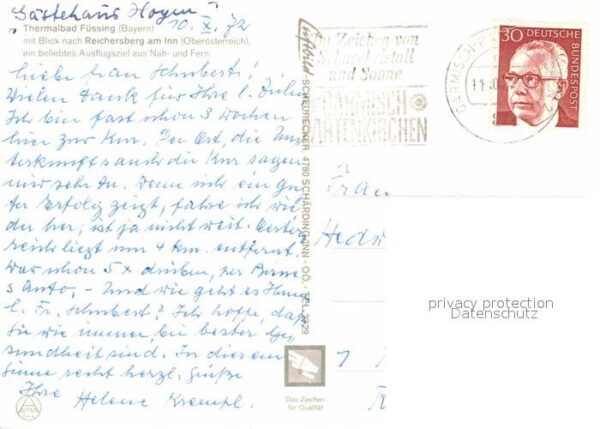 „Gästehaus Hoyen"
10. X. 72
Thermalbad Füssing (Bayern)
mit Blick nach Reichersberg am Inn (Oberösterreich),
ein beliebtes Ausflugsziel aus Nah- und Fern
Liebe Frau Schubert!
Vielen Dank für Ihre l. Zeilen
Ich bin fast schon 3 Wochen
hier zur Kur. Der Ort, die Un-
terkunft auch die Kur sagen
mir sehr zu. Wenn sich ein gu-
ter Erfolg zeigt, fahre ich wie
der her; ist ja nicht weit. Öster
reich liegt nur 4 km. entfernt.
War schon 5x drüben, per
Auto. - Und wie geht es Ihnen
l. Fr. Schubert? Ich hoffe, daß
Sie wie immer, bei bester Ge-
sundheit sind. In diesem
Sinne recht herzl. Grüße
Ihre Helene Krempl.
Luftbild SCHEURECKER 4780 SCHÄRDING/INN - OÖ. TEL. 2829
Im Zeichen von
Schnee Eis
und Sonne
GARMISCH
PARTENKIRCHEN
GARMISCH-P
30
DEUTSCHE
BUNDESPOST
Frau
Hedw
privacy protection
Datenschutz
Das Zeichen
für Qualität